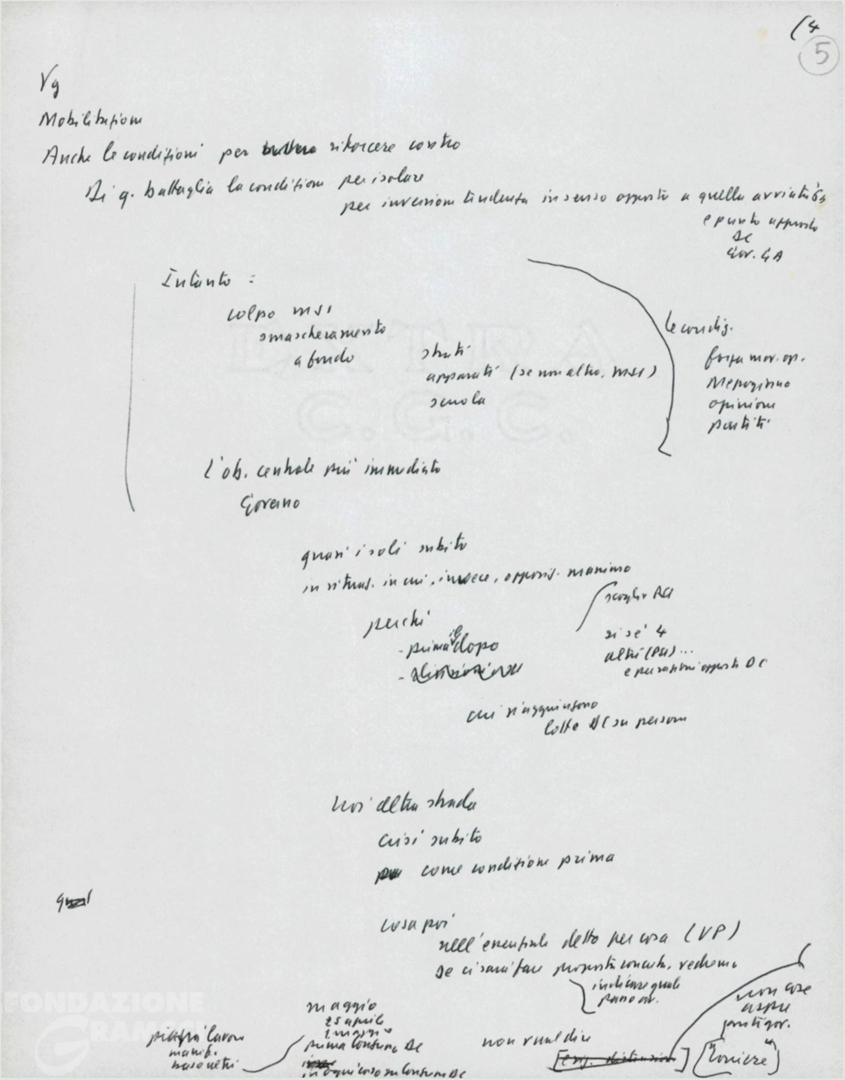 (4
5
Vg
Mobilitazioni
Anche le condizioni per ritorcere contro
Di q. battaglia la condizione per isolare
per inversione tendenza in senso opposto a quella avviatasi
e punto appunto
DC
Gov. GA
Intanto :
colpo MSI
smascheramento
a fondo
strati
apparati (se non altro, MSI)
scuola
le condiz.
forza mov. op.
Mezzogiorno
opinione
partiti
L'ob. centrale più immediato
Governo
quasi soli subito
in situaz. in cui, invece, opposiz. manima
perché
- prima e dopo
si sé 4
altri (PSI)...
e per ragioni opposte DC
cui si aggiungono
lotte DC su persone
Noi altra strada
crisi subito
come condizione prima
cosa poi
nell'essenziale detto per cosa (VP)
Se ci sarà fare proposte concrete, vedremo
indicare quale
non cose
aspre
"Corriere"
non vuol dire
maggio
25 aprile
1 maggio
prima Consura DC
in ogni caso su Consura DC
piazza lavoro
manif.
FONDAZIONE
GRAMSCI
EXTRA
C.G.C.